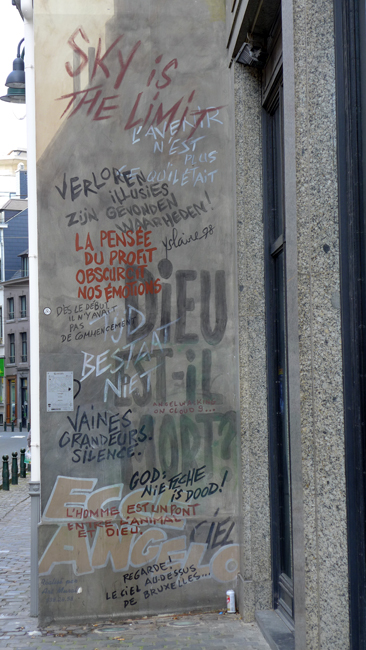 SKY is
THE LIMIT
L'AVENIR
N'EST
PLUS
CE QU'IL ÉTAIT
VERLOREN
ILLUSIES
ZIJN GEVONDEN
WAARHEDEN!
yslaire 98
LA PENSÉE
DU PROFIT
OBSCURCIT
NOS ÉMOTIONS
DIEU
EST-IL
MORT?
DÈS LE DÉBUT
IL N'Y AVAIT
PAS
DE COMMENCEMENT
BESTAAT
NIET
VAINES
GRANDEURS.
SILENCE.
GOD:
NIETZCHE
IS DOOD!
L'HOMME EST UN PONT
ENTRE L'ANIMAL
ET DIEU.
CIEL
ANGELO
REGARDE!
LE CIEL AU-DESSUS
DE BRUXELLES...